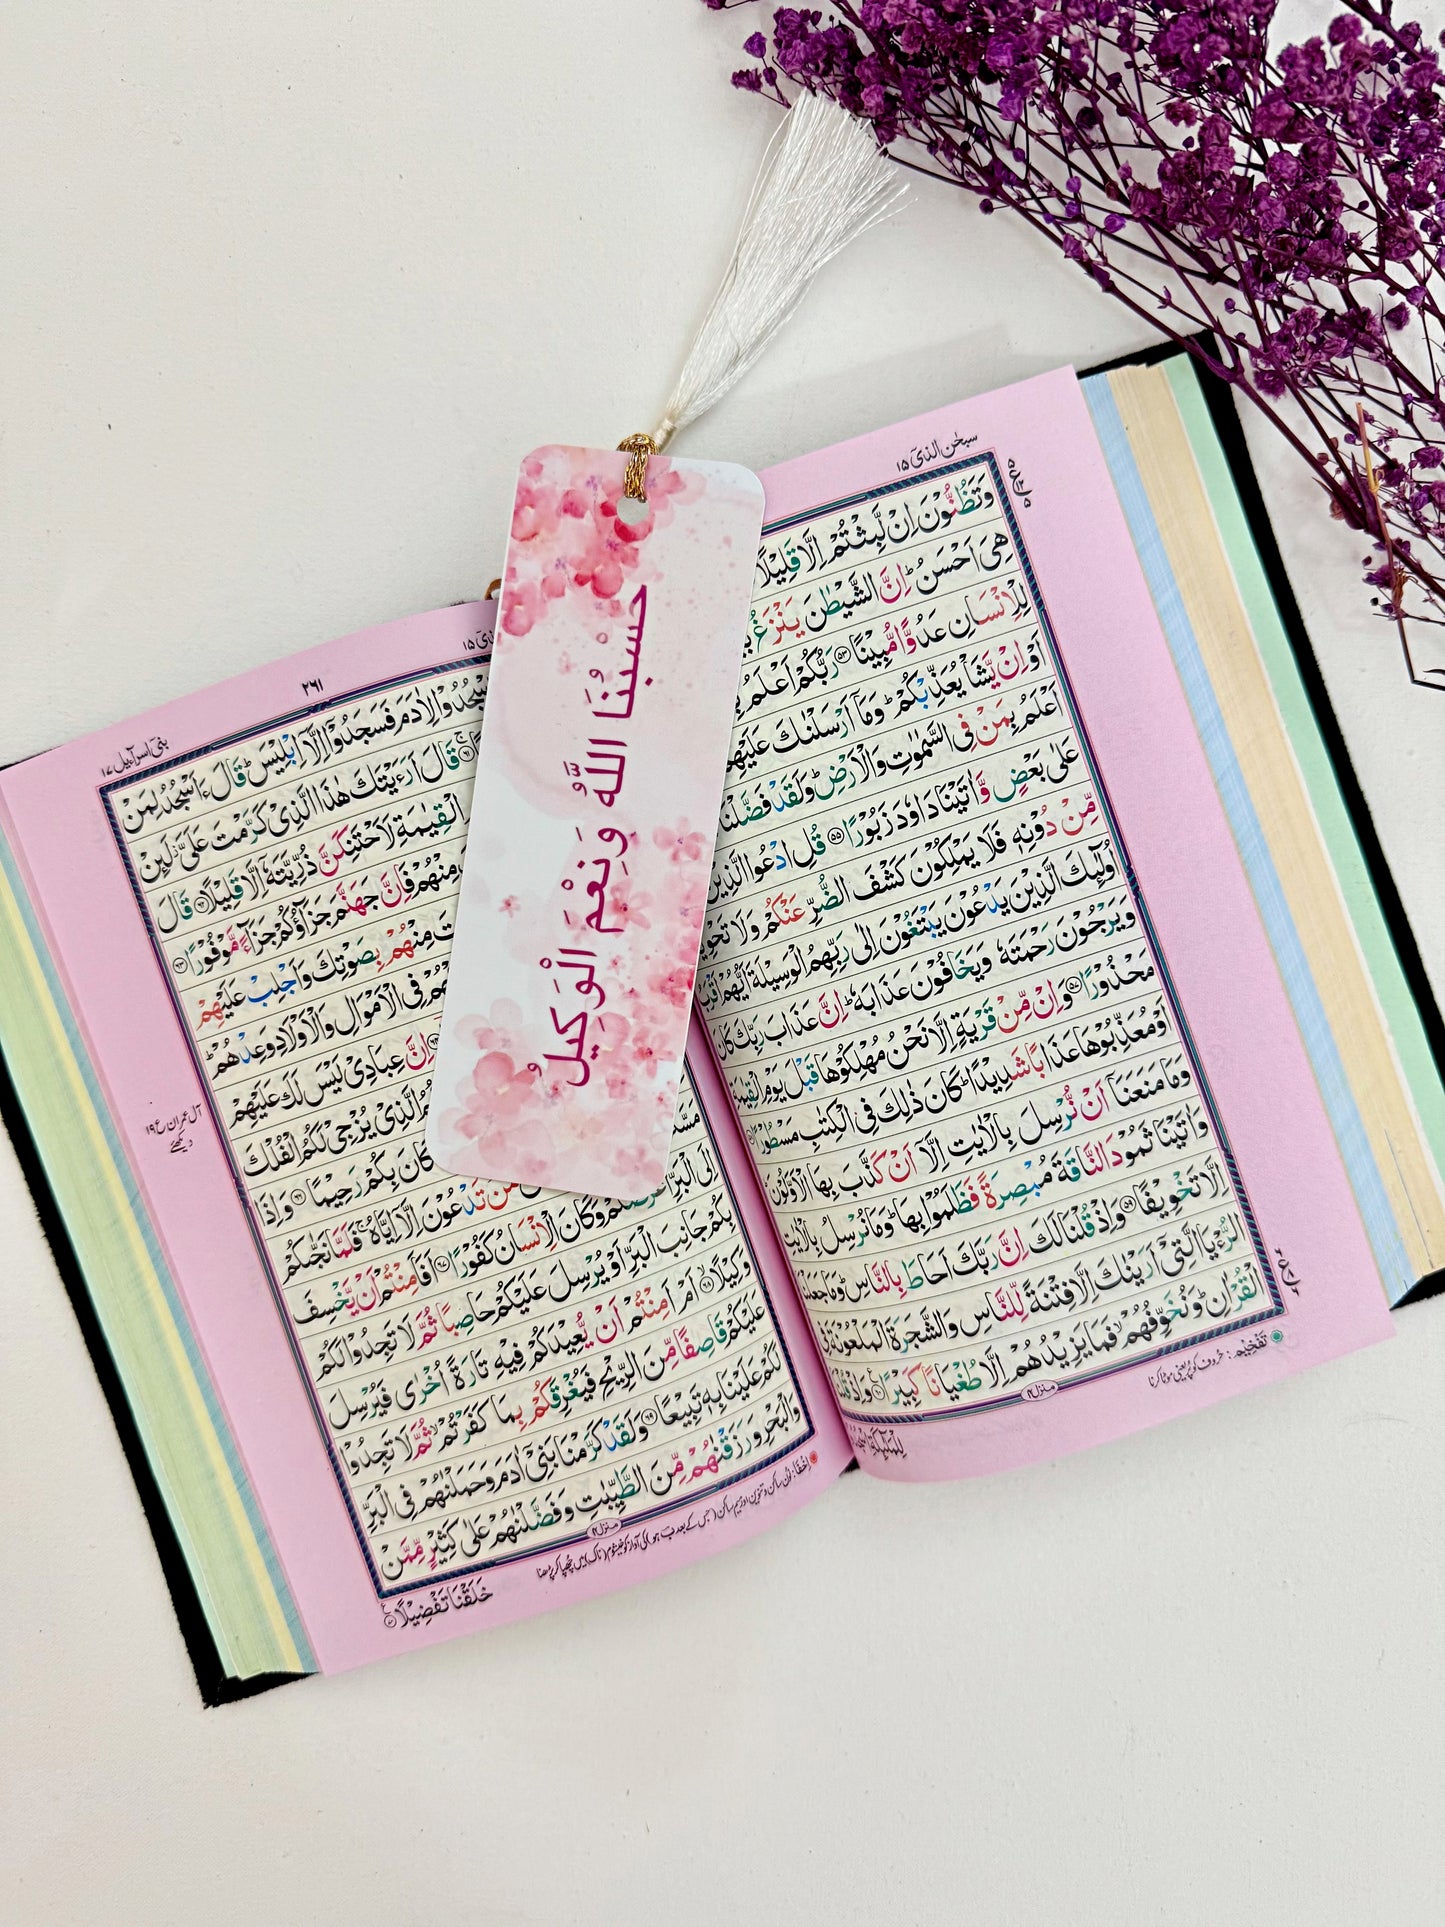 سبحٰن الذیۤ ۱۵
وَتَظُنُّوْنَ اِنْ لَّبِثْتُمْ اِلَّا قَلِيْلًا
هِيَ اَحْسَنُ ؕ اِنَّ الشَّيْطٰنَ يَنْزَغُ
لِلْاِنْسَانِ عَدُوًّا مُّبِيْنًا ۵۳ رَبُّكُمْ اَعْلَمُ
اَوْ اِنْ يَّشَاْ يُعَذِّبْكُمْ ؕ وَمَاۤ اَرْسَلْنٰكَ عَلَيْهِمْ
اَعْلَمُ بِمَنْ فِي السَّمٰوٰتِ وَالْاَرْضِ ؕ وَلَقَدْ فَضَّلْنَا
عَلٰى بَعْضٍ وَّاٰتَيْنَا دَاوٗدَ زَبُوْرًا ۵۵ قُلِ ادْعُوا الَّذِيْنَ
مِّنْ دُوْنِهٖ فَلَا يَمْلِكُوْنَ كَشْفَ الضُّرِّ عَنْكُمْ وَلَا تَحْوِيْلًا
اُولٰٓئِكَ الَّذِيْنَ يَدْعُوْنَ يَبْتَغُوْنَ اِلٰى رَبِّهِمُ الْوَسِيْلَةَ اَيُّهُمْ اَقْرَبُ
وَيَرْجُوْنَ رَحْمَتَهٗ وَيَخَافُوْنَ عَذَابَهٗ ؕ اِنَّ عَذَابَ رَبِّكَ كَانَ
مَحْذُوْرًا ۵۷ وَاِنْ مِّنْ قَرْيَةٍ اِلَّا نَحْنُ مُهْلِكُوْهَا قَبْلَ يَوْمِ الْقِيٰمَةِ
اَوْ مُعَذِّبُوْهَا عَذَابًا شَدِيْدًا ؕ كَانَ ذٰلِكَ فِي الْكِتٰبِ مَسْطُوْرًا
وَمَا مَنَعَنَاۤ اَنْ نُّرْسِلَ بِالْاٰيٰتِ اِلَّاۤ اَنْ كَذَّبَ بِهَا الْاَوَّلُوْنَ
وَاٰتَيْنَا ثَمُوْدَ النَّاقَةَ مُبْصِرَةً فَظَلَمُوْا بِهَا ؕ وَمَا نُرْسِلُ بِالْاٰيٰتِ
اِلَّا تَخْوِيْفًا ۵۹ وَاِذْ قُلْنَا لَكَ اِنَّ رَبَّكَ اَحَاطَ بِالنَّاسِ ؕ وَمَا جَعَلْنَا
الرُّءْيَا الَّتِيْۤ اَرَيْنٰكَ اِلَّا فِتْنَةً لِّلنَّاسِ وَالشَّجَرَةَ الْمَلْعُوْنَةَ فِي
الْقُرْاٰنِ ؕ وَنُخَوِّفُهُمْ ۙ فَمَا يَزِيْدُهُمْ اِلَّا طُغْيَانًا كَبِيْرًا ۶۰ وَاِذْ قُلْنَا
منزل ۴
تَفْخِيْم : حروف کو پُر یعنی موٹا کرنا
حَسْبُنَا اللَّهُ وَنِعْمَ الْوَكِيلُ
بنیۤ اسرآءیل ۱۷
۲٦۱
اسْجُدُوْا لِاٰدَمَ فَسَجَدُوْۤا اِلَّاۤ اِبْلِيْسَ ؕ قَالَ ءَاَسْجُدُ لِمَنْ
قَالَ اَرَءَيْتَكَ هٰذَا الَّذِيْ كَرَّمْتَ عَلَيَّ ز لَئِنْ
الْقِيٰمَةِ لَاَحْتَنِكَنَّ ذُرِّيَّتَهٗۤ اِلَّا قَلِيْلًا ۶۲ قَالَ
مِنْهُمْ فَاِنَّ جَهَنَّمَ جَزَآؤُكُمْ جَزَآءً مَّوْفُوْرًا ۶۳
مِنْهُمْ بِصَوْتِكَ وَاَجْلِبْ عَلَيْهِمْ
فِي الْاَمْوَالِ وَالْاَوْلَادِ وَعِدْهُمْ ؕ
اِنَّ عِبَادِيْ لَيْسَ لَكَ عَلَيْهِمْ
الَّذِيْ يُزْجِيْ لَكُمُ الْفُلْكَ
كَانَ بِكُمْ رَحِيْمًا ۶۶ وَاِذَا مَسَّ
مَنْ تَدْعُوْنَ اِلَّاۤ اِيَّاهُ ۚ فَلَمَّا نَجّٰىكُمْ اِلَى الْبَرِّ
وَكَانَ الْاِنْسَانُ كَفُوْرًا ۶۷ اَفَاَمِنْتُمْ اَنْ يَّخْسِفَ
بِكُمْ جَانِبَ الْبَرِّ اَوْ يُرْسِلَ عَلَيْكُمْ حَاصِبًا ثُمَّ لَا تَجِدُوْا لَكُمْ
وَكِيْلًا ۶۸ اَمْ اَمِنْتُمْ اَنْ يُّعِيْدَكُمْ فِيْهِ تَارَةً اُخْرٰى فَيُرْسِلَ
عَلَيْكُمْ قَاصِفًا مِّنَ الرِّيْحِ فَيُغْرِقَكُمْ بِمَا كَفَرْتُمْ ۙ ثُمَّ لَا تَجِدُوْا
لَكُمْ عَلَيْنَا بِهٖ تَبِيْعًا ۶۹ وَلَقَدْ كَرَّمْنَا بَنِيْۤ اٰدَمَ وَحَمَلْنٰهُمْ فِي الْبَرِّ
وَالْبَحْرِ وَرَزَقْنٰهُمْ مِّنَ الطَّيِّبٰتِ وَفَضَّلْنٰهُمْ عَلٰى كَثِيْرٍ مِّمَّنْ
منزل ۴
خَلَقْنَا تَفْضِيْلًا ۷۰